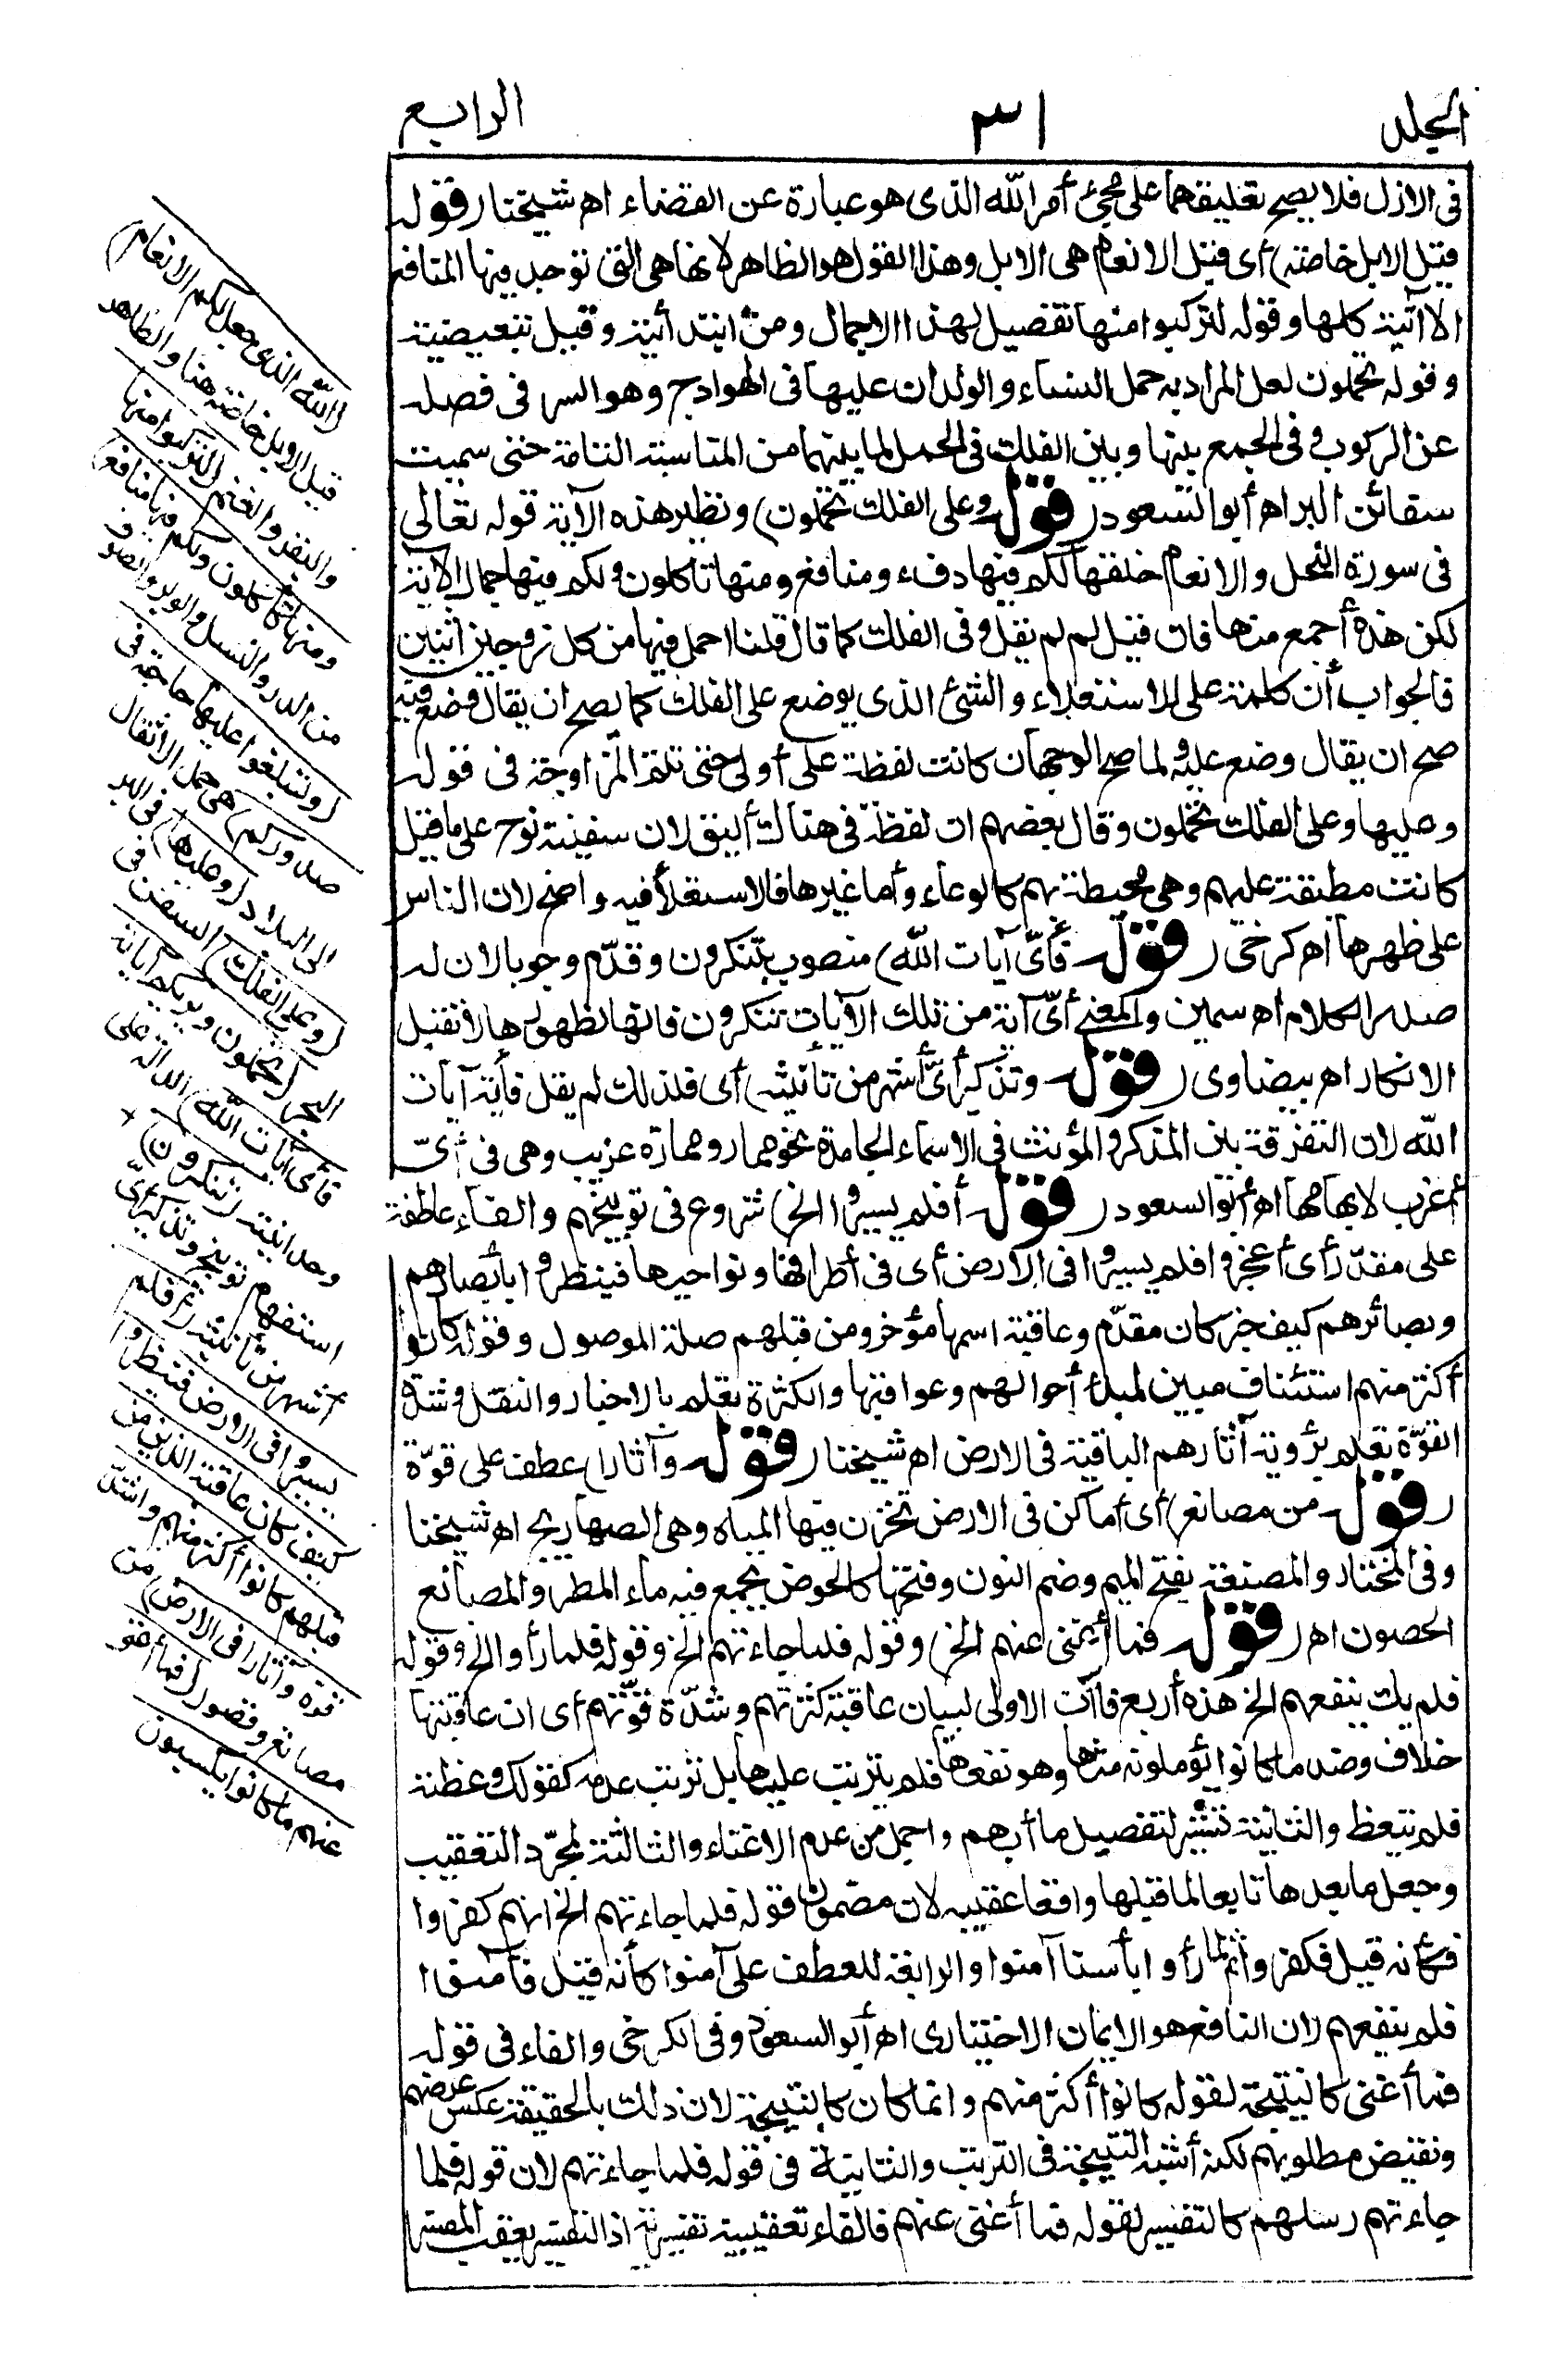 الجلد ٣١ الرابع
فى الازل فلا يصح تعليقهما على مجئ أمر الله الذى هو عبارة عن القضاء اه شيخنا (قوله
قيل الابل خاصة) أى قيل الانعام هى الابل وهذا القول هو الظاهر لانها هى التى توجد فيها المنافع
الآتية كلها وقوله لتركبوا منها تفصيل لهذا الاجمال ومن ابتدائية وقيل تبعيضية
وقوله تحملون لعل المراد به حمل النساء والولدان عليها فى الهوادج وهو السر فى فصله
عن الركوب وفى الجمع بينها وبين الفلك فى الحمل لما بينهما من المناسبة التامة حتى سميت
سفائن البر اه أبو السعود (قوله وعلى الفلك تحملون) ونظير هذه الآية قوله تعالى
فى سورة النحل والانعام خلقها لكم فيها دفء ومنافع ومنها تأكلون ولكم فيها جمال الآية
لكن هذه أجمع منها فان قيل لم لم يقل وفى الفلك كما قال قلنا احمل فيها من كل زوجين اثنين
فالجواب أن كلمة على للاستعلاء والشئ الذى يوضع على الفلك كما يصح ان يقال وضع فيه
صح ان يقال وضع عليه ولما صح الوجهان كانت لفظة على أولى حتى تتم المزاوجة فى قوله
وعليها وعلى الفلك تحملون وقال بعضهم ان لفظة فى هناك أليق لان سفينة نوح على ما قيل
كانت مطبقة عليهم وهى محيطة بهم كالوعاء وأما غيرها فالاستعلاء فيه واضح لان الناس
على ظهرها اه كرخى (قوله فأىّ آيات الله) منصوب بتنكرون وقدّم وجوبا لان له
صدر الكلام اه سمين والمعنى أىّ آية من تلك الآيات تنكرون فانها لظهورها لا تقبل
الانكار اه بيضاوى (قوله وتذكير أىّ أشهر من تأنيثه) أى فلذلك لم يقل فأية آيات
الله لان التفرقة بين المذكر والمؤنث فى الاسماء الجامدة نحو حمار وحمارة غريب وهى فى أىّ
أغرب لابهامها اه أبو السعود (قوله أفلم يسيروا الخ) شروع فى توبيخهم والفاء عاطفة
على مقدّر أى أعجزوا فلم يسيروا فى الارض أى فى أطرافها ونواحيها فينظروا بأبصارهم
وبصائرهم كيف خبر كان مقدّم وعاقبة اسمها مؤخر ومن قبلهم صلة الموصول وقوله كانوا
أكثر منهم استئناف مبين لمبدأ أحوالهم وعواقبها والكثرة تعلم بالاخبار والنقل وشدّة
القوّة تعلم برؤية آثارهم الباقية فى الارض اه شيخنا (قوله وآثارا) عطف على قوّة
(قوله من مصانع) أى أماكن فى الارض تخزن فيها المياه وهى الصهاريج اه شيخنا
وفى المختار والمصنعة بفتح الميم وضم النون وفتحها كالحوض يجمع فيه ماء المطر والمصانع
الحصون اه (قوله فما أغنى عنهم الخ) وقوله فلما جاءتهم الخ وقوله فلما رأوا الخ وقوله
فلم يك ينفعهم الخ هذه أربع فاآت الاولى لبيان عاقبة كثرتهم وشدّة قوّتهم أى ان عاقبتها
خلاف وضد ما كانوا يؤملونه منها وهو نفعها فلم يترتب عليها بل ترتب عدمه كقولك وعظته
فلم يتعظ والثانية تفسير لتفصيل ما أبهم وأجمل من عدم الاغناء والثالثة لمجرّد التعقيب
وجعل ما بعدها تابعا لما قبلها واقعا عقيبه لان مضمون قوله فلما جاءتهم الخ انهم كفروا
فكأنه قيل فكفروا ثم لما رأوا بأسنا آمنوا والرابعة للعطف على آمنوا كأنه قيل فآمنوا
فلم ينفعهم لان النافع هو الايمان الاختيارى اه أبو السعود وفى الكرخى والفاء فى قوله
فما أغنى كالنتيجة لقوله كانوا أكثر منهم وانما كان كالنتيجة لان ذلك بالحقيقة عكس غرضهم
ونقيض مطلوبهم لكنه أشبه النتيجة فى الترتب والثانية فى قوله فلما جاءتهم لان قوله فلما
جاءتهم رسلهم كالتفسير لقوله فما أغنى عنهم فالفاء تعقيبية تفسيرية اذ التفسير يعقب المفسر
(الله الذى جعل لكم الانعام)
قيل الابل خاصة هنا والظاهر
والبقر والغنم (لتركبوا منها
ومنها تأكلون ولكم فيها منافع)
من الدر والنسل والوبر والصوف
(ولتبلغوا عليها حاجة فى
صدوركم) هى حمل الاثقال
الى البلاد (وعليها) فى البر
(وعلى الفلك) السفن فى
البحر (تحملون ويريكم آياته
فأى آيات الله) الدالة على
وحدانيته (تنكرون)
استفهام توبيخ وتذكير أىّ
أشهر من تأنيثه (أفلم
يسيروا فى الارض فينظروا
كيف كان عاقبة الذين من
قبلهم كانوا أكثر منهم وأشدّ
قوّة وآثارا فى الارض) من
مصانع وقصور (فما أغنى
عنهم ما كانوا يكسبون